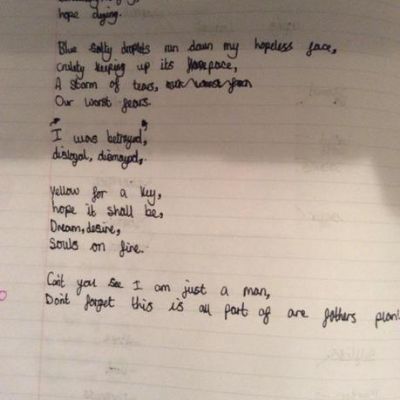 hope dying.
Blue salty droplets run down my hopeless face,
cruelty keeping up its pace,
A storm of tears,
Our worst fears.
I was betrayed,
disloyal, dismayed,
Yellow for a key,
hope it shall be,
Dream, desire,
Souls on fire.
Can't you see I am just a man,
Dont forget this is all part of are fathers plan!